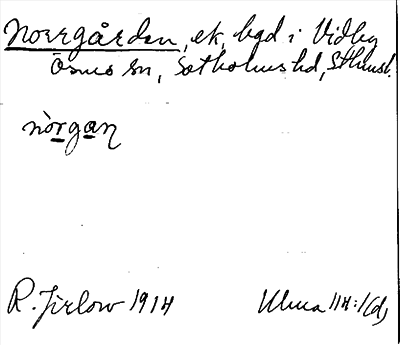 Norrgården, ek, bgd i Vidby
Ösmo sn, Sotholms hd, Sthlmsl.
nòrgan
R. Jirlow 1914 Ulma 114:1(d)